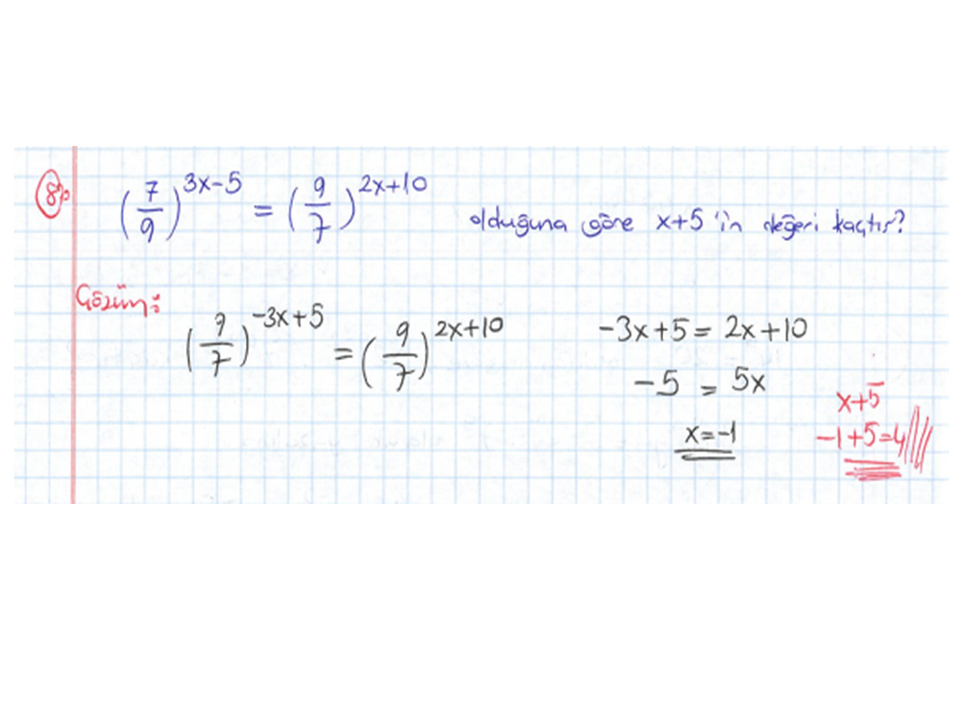 8) (7/9)^3x-5 = (9/7)^2x+10 olduğuna göre x+5 'in değeri kaçtır?
Çözüm:
(9/7)^-3x+5 = (9/7)^2x+10
-3x+5 = 2x+10
-5 = 5x
x=-1
x+5
-1+5=4